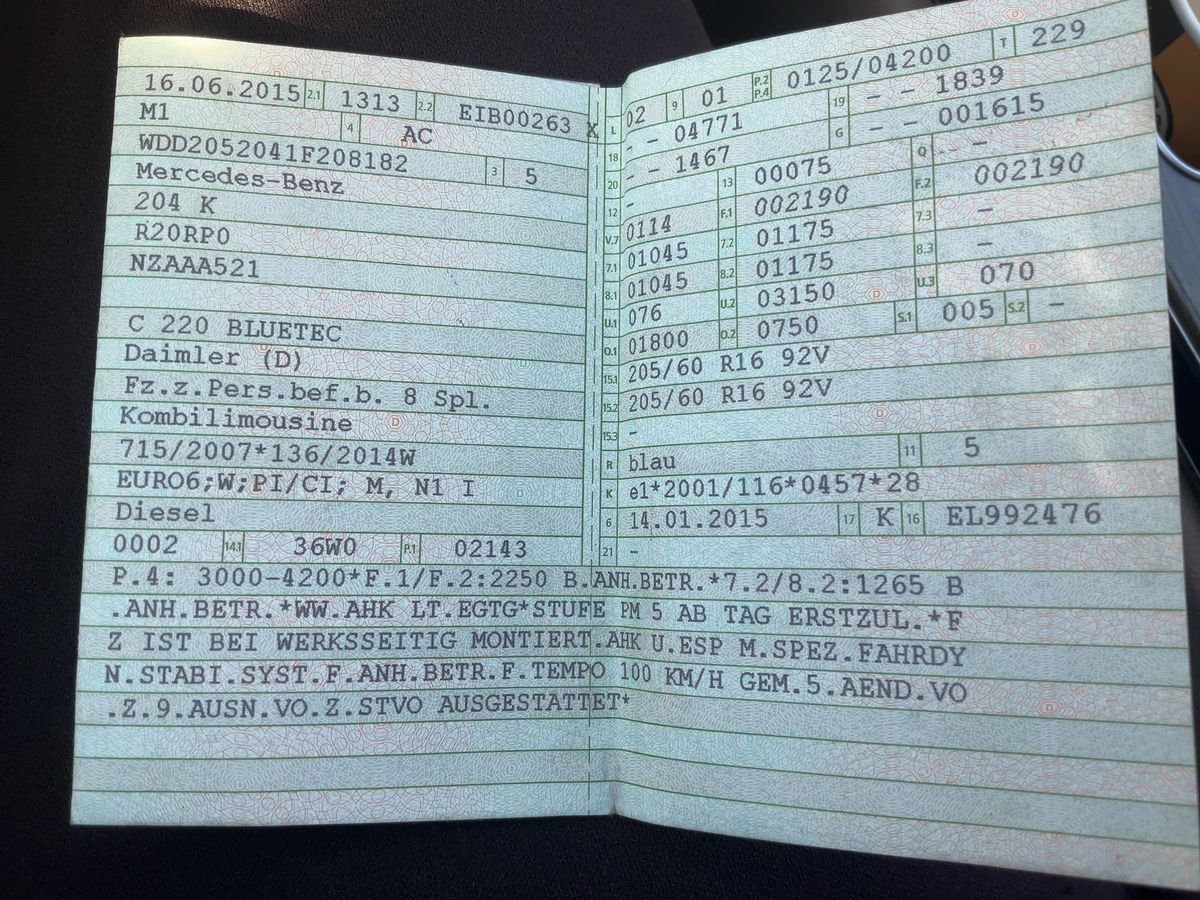 16.06.2015 2.1 1313 2.2 EIB00263 X
M1 4 AC
WDD2052041F208182 3 5
Mercedes-Benz
204 K
R20RP0
NZAAA521
C 220 BLUETEC
Daimler (D)
Fz.z.Pers.bef.b. 8 Spl.
Kombilimousine
715/2007*136/2014W
EURO6;W;PI/CI; M, N1 I
Diesel
0002 14.1 36W0 P.1 02143
L 02 9 01 P.2 P.4 0125/04200 T 229
18 - - 04771 19 - - 1839
20 - - 1467 G - - 001615
12 - 13 00075 Q - -
V.7 0114 F.1 002190 F.2 002190
7.1 01045 7.2 01175 7.3 -
8.1 01045 8.2 01175 8.3 -
U.1 076 U.2 03150 U.3 070
O.1 01800 O.2 0750 S.1 005 S.2 -
15.1 205/60 R16 92V
15.2 205/60 R16 92V
15.3 -
R blau 11 5
K e1*2001/116*0457*28
6 14.01.2015 17 K 16 EL992476
21 -
P.4: 3000-4200*F.1/F.2:2250 B.ANH.BETR.*7.2/8.2:1265 B
.ANH.BETR.*WW.AHK LT.EGTG*STUFE PM 5 AB TAG ERSTZUL.*F
Z IST BEI WERKSSEITIG MONTIERT.AHK U.ESP M.SPEZ.FAHRDY
N.STABI.SYST.F.ANH.BETR.F.TEMPO 100 KM/H GEM.5.AEND.VO
.Z.9.AUSN.VO.Z.STVO AUSGESTATTET*